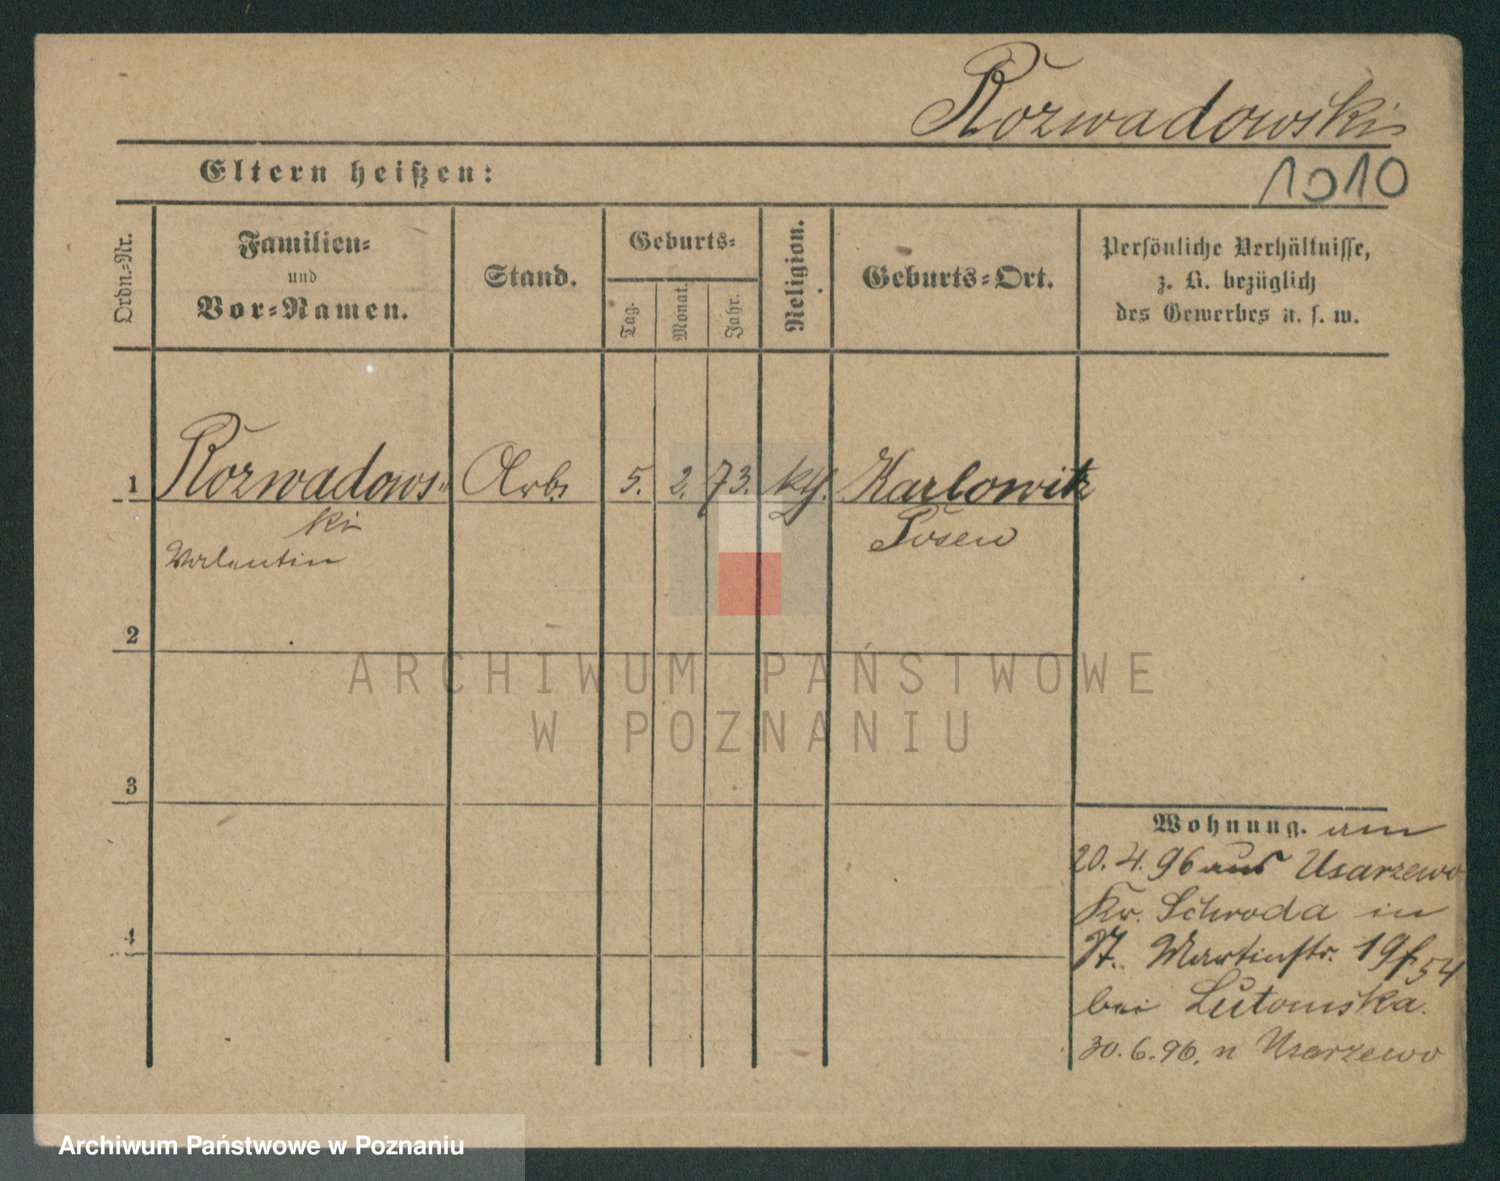 Rozwadowski
1010
Eltern heißen:
Ordn.-Nr.
Familien-
und
Vor-Namen.
Stand.
Geburts-
Tag.
Monat.
Jahr.
Religion.
Geburts-Ort.
Persönliche Verhältnisse,
z. B. bezüglich
des Gewerbes u. s. w.
1 Rozwadows- Arb. 5. 2. 73. kth. Karlowitz
ki Posen
Valentin
2
3
4
Wohnung. am
20. 4. 96 aus Usarzewo
Kr. Schroda in
St. Martinstr. 19/54
bei Lutomska.
30. 6. 96. n Usarzewo
ARCHIWUM PAŃSTWOWE
W POZNANIU
Archiwum Państwowe w Poznaniu